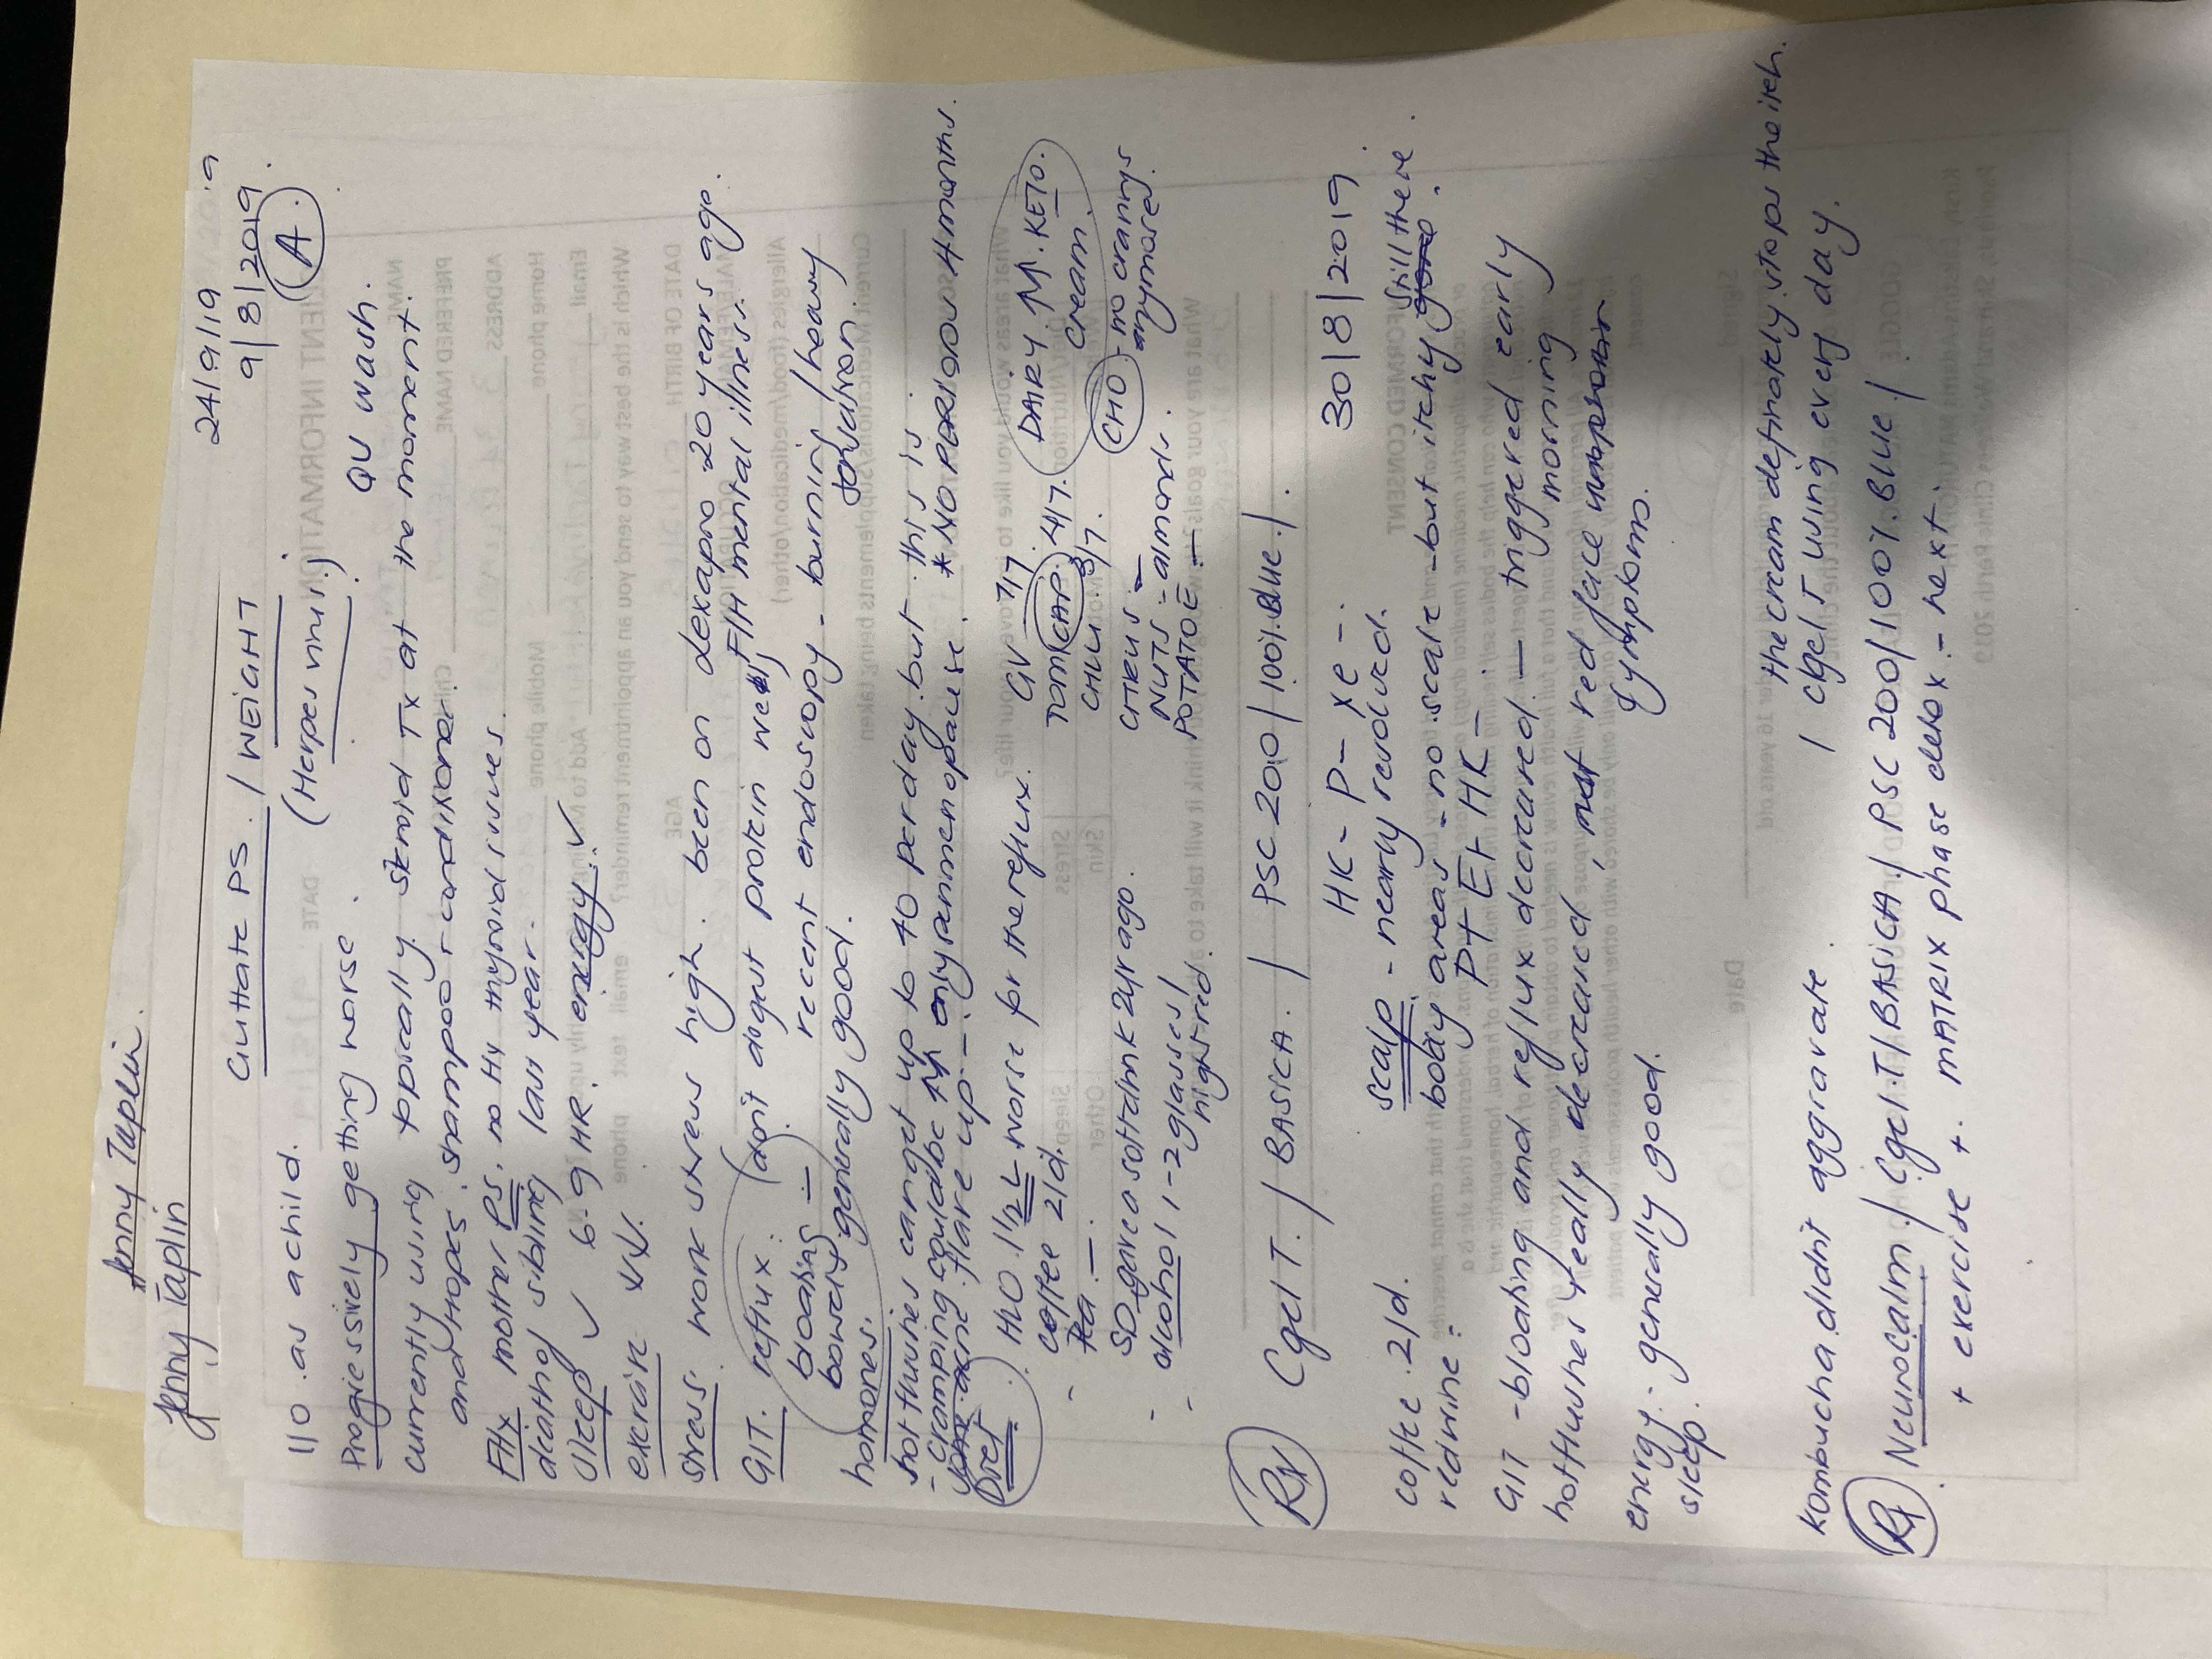 Jenny Taplin
Jenny Taplin
24/9/19
Guttate PS. / WEIGHT
9/8/2019
(Herpes virus!)
A
I/O. as a child.
Progressively getting worse.
QV wash.
currently using topically. steroid Tx at the moment.
and Hopes. shampoo + conditioner.
FHx mother PS. no Hx thyroid issues.
death of sibling last year.
sleep ✓ 6-9 HR. energy. ✓
exercise ↓↓.
stress. work stress high. been on lexapro 20 years ago.
F/H mental illness.
GIT. reflux. (don't digest protein well)
bloating - recent endoscopy - burning / heavy sensation.
bowels generally good.
hormones.
hot flushes can get up to 10 per day. but this is.
- cramping could be perimenopause. * NO PERIOD IN 4 months.
flare up -.
Diet
H2O. 1 1/2 L. worse for the reflux.
coffee 2/d.
Tea. -.
SD - gave a softdrink 2yr ago.
alcohol 1-2 glasses / night red.
GV 7/7
TOM CAP. 4/7.
CHILLI 3/7.
CITRUS -
NUTS - almonds.
POTATOE -
DAIRY. M. KETO.
cream.
CHO - no cravings anymore.
Rx Cgel T. / BASICA. / PSC 200 / 100% Blue /.
30/8/2019
HK - P - xe -.
coffee. 2/d.
red wine -
scalp - nearly resolved.
body areas - no scale - but itchy gone still there.
P+ E+ HK -
GIT - bloating and reflux decreased. - triggered early morning
hot flushes really decreased, red face symptoms.
energy. generally good.
sleep.
Kombucha didn't aggravate.
the cream definately stops the itch.
/ Cgel T using every day.
Rx Neurocalm. / Cgel T / BASICA / PSC 200 / 100% BLUE /
+ exercise + MATRIX phase detox. - next.